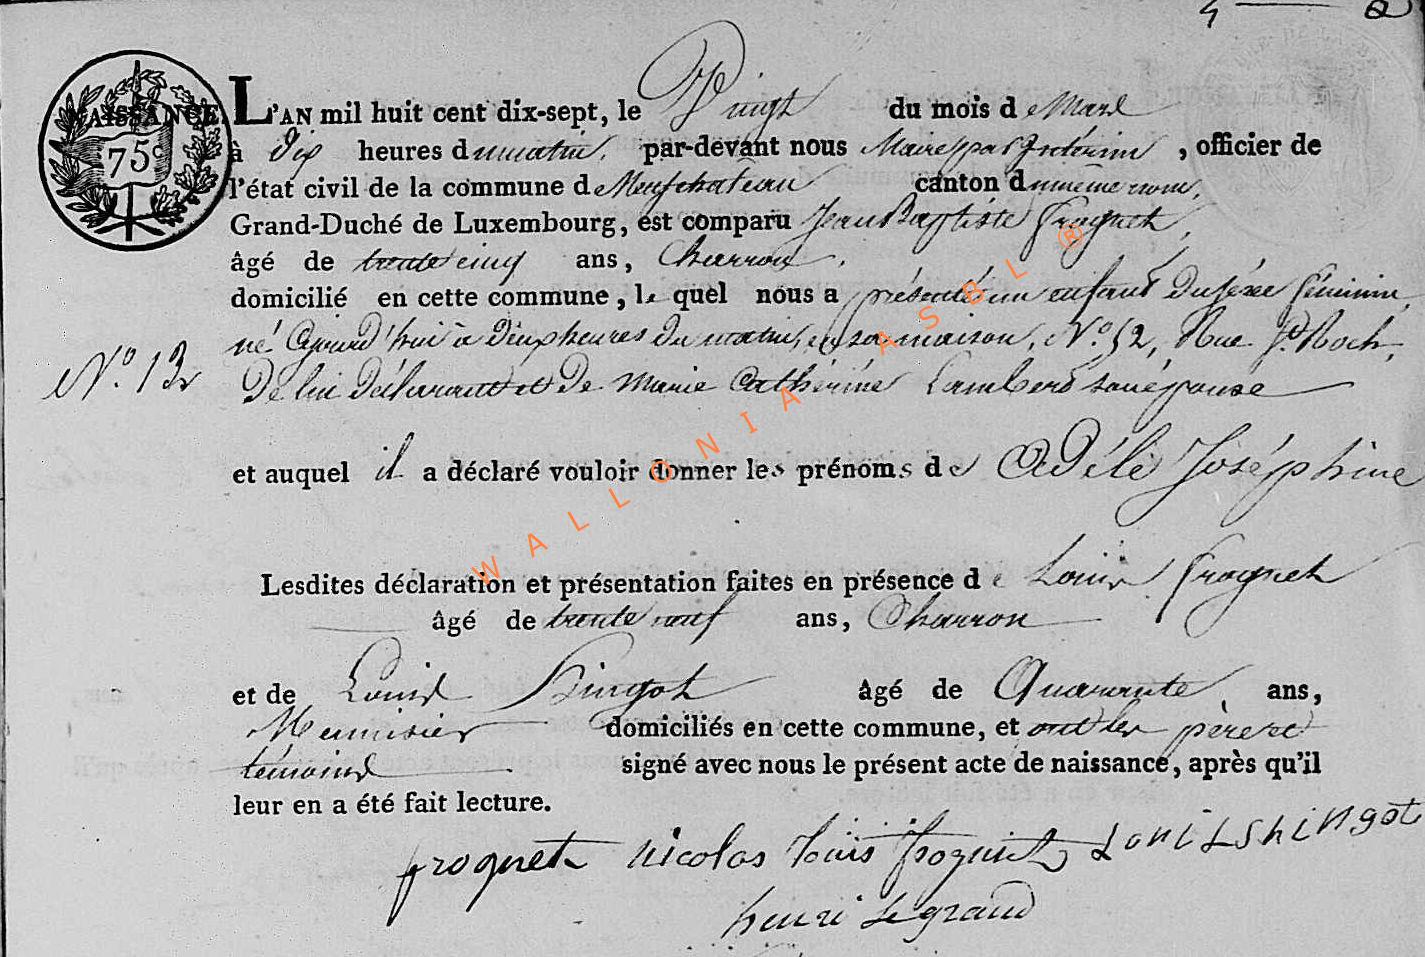 NAISSANCE.
75c
L'AN mil huit cent dix-sept, le Vingt du mois de Mars
à dix heures du matin, par-devant nous Maire par Intérim, officier de
l'état civil de la commune de Neufchateau canton du même nom,
Grand-Duché de Luxembourg, est comparu Jean Baptiste Frognet,
âgé de trente cinq ans, Charron,
domicilié en cette commune, le quel nous a présenté un enfant du séxe féminin,
né aujourd'hui à deux heures du matin, en sa maison, No. 52, Rue St. Roch,
No. 13
de lui déclarant et de Marie Catherine Lambert son épouse
et auquel il a déclaré vouloir donner les prénoms de Adéle Joséphine
Lesdites déclaration et présentation faites en présence de Louis Frognet
âgé de trente neuf ans, Charron
et de Louis Singot âgé de Quarante ans,
Menuisier domiciliés en cette commune, et ont les père et
témoins signé avec nous le présent acte de naissance, après qu'il
leur en a été fait lecture.
frognet nicolas louis frognet Louis Shingot
henri Legrand
WALLONIA ASBL ®